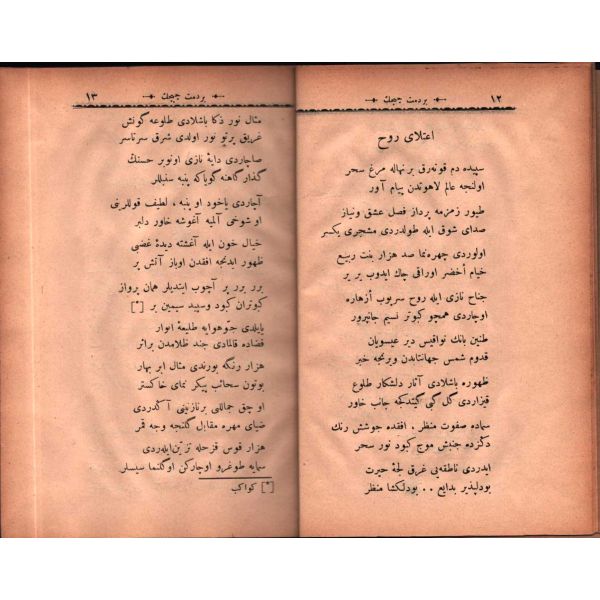 ١٢
بر دمت چیچك
اعتلای روح
سپیده دم قونه‌رق بر نهاله مرغ سحر
اولنجه عالم لاهوتدن پیام آور
طیور زمزمه پرداز فصل عشق ونیاز
صدای شوق ایله طولدردی مشجری یکسر
اولوردی چهره‌نما صد هزار بنت ربیع
خیام أخضر اوراقی چاك ایدوب یر یر
جناح نازی ایله روح سرپوب أزهاره
اوچاردی همچو کبوتر نسیم جانپرور
طنین بانك نواقیس دیر عیسویان
قدوم شمس جهانتابدن ویرنجه خبر
ظهوره باشلادی آثار دلشکار طلوع
قیزاردی گل گبی گیتدکجه جانب خاور
سماده صفوت منظر ، افقده جوشش رنك
دکزده جنبش موج کبود نور سحر
ایدردی ناطقه‌یی غرق لجهٔ حیرت
بودلپذیر بدایع . . بودلکشا منظر
١٣
بر دمت چیچك
مثال نور ذکا باشلادی طلوعه گونش
غریق پرتو نور اولدی شرق سرتاسر
صاچاردی دایهٔ نازی اونوبر حسنك
گذارگاهنه گویاکه پنبه سنبللر
آچاردی یاخود او پنبه ، لطیف قوللرنی
او شوخی آلمیه آغوشه خاور دلبر
خیال خون ایله آغشته دیدهٔ غضبی
ظهور ایدنجه افقدن اوباز آتش پر
برر برر پر آچوب ایتدیلر همان پرواز
کبوتران کبود وسپید سیمین بر [*]
یایلدی جو هوایه طلیعهٔ انوار
فضاده قالمادی جند ظلامدن براثر
هزار رنگه بورندی مثال ابر بهار
بوتون سحائب پیکر نمای خاکستر
او چق جماللی برنازنینی آکدردی
ضیای مهره مقابل گلنجه وجه قمر
هزار قوس قزحله تزین ایله‌ردی
سمایه طوغرو اوچارکن اوگلنما سیسلر
[*] کواکب